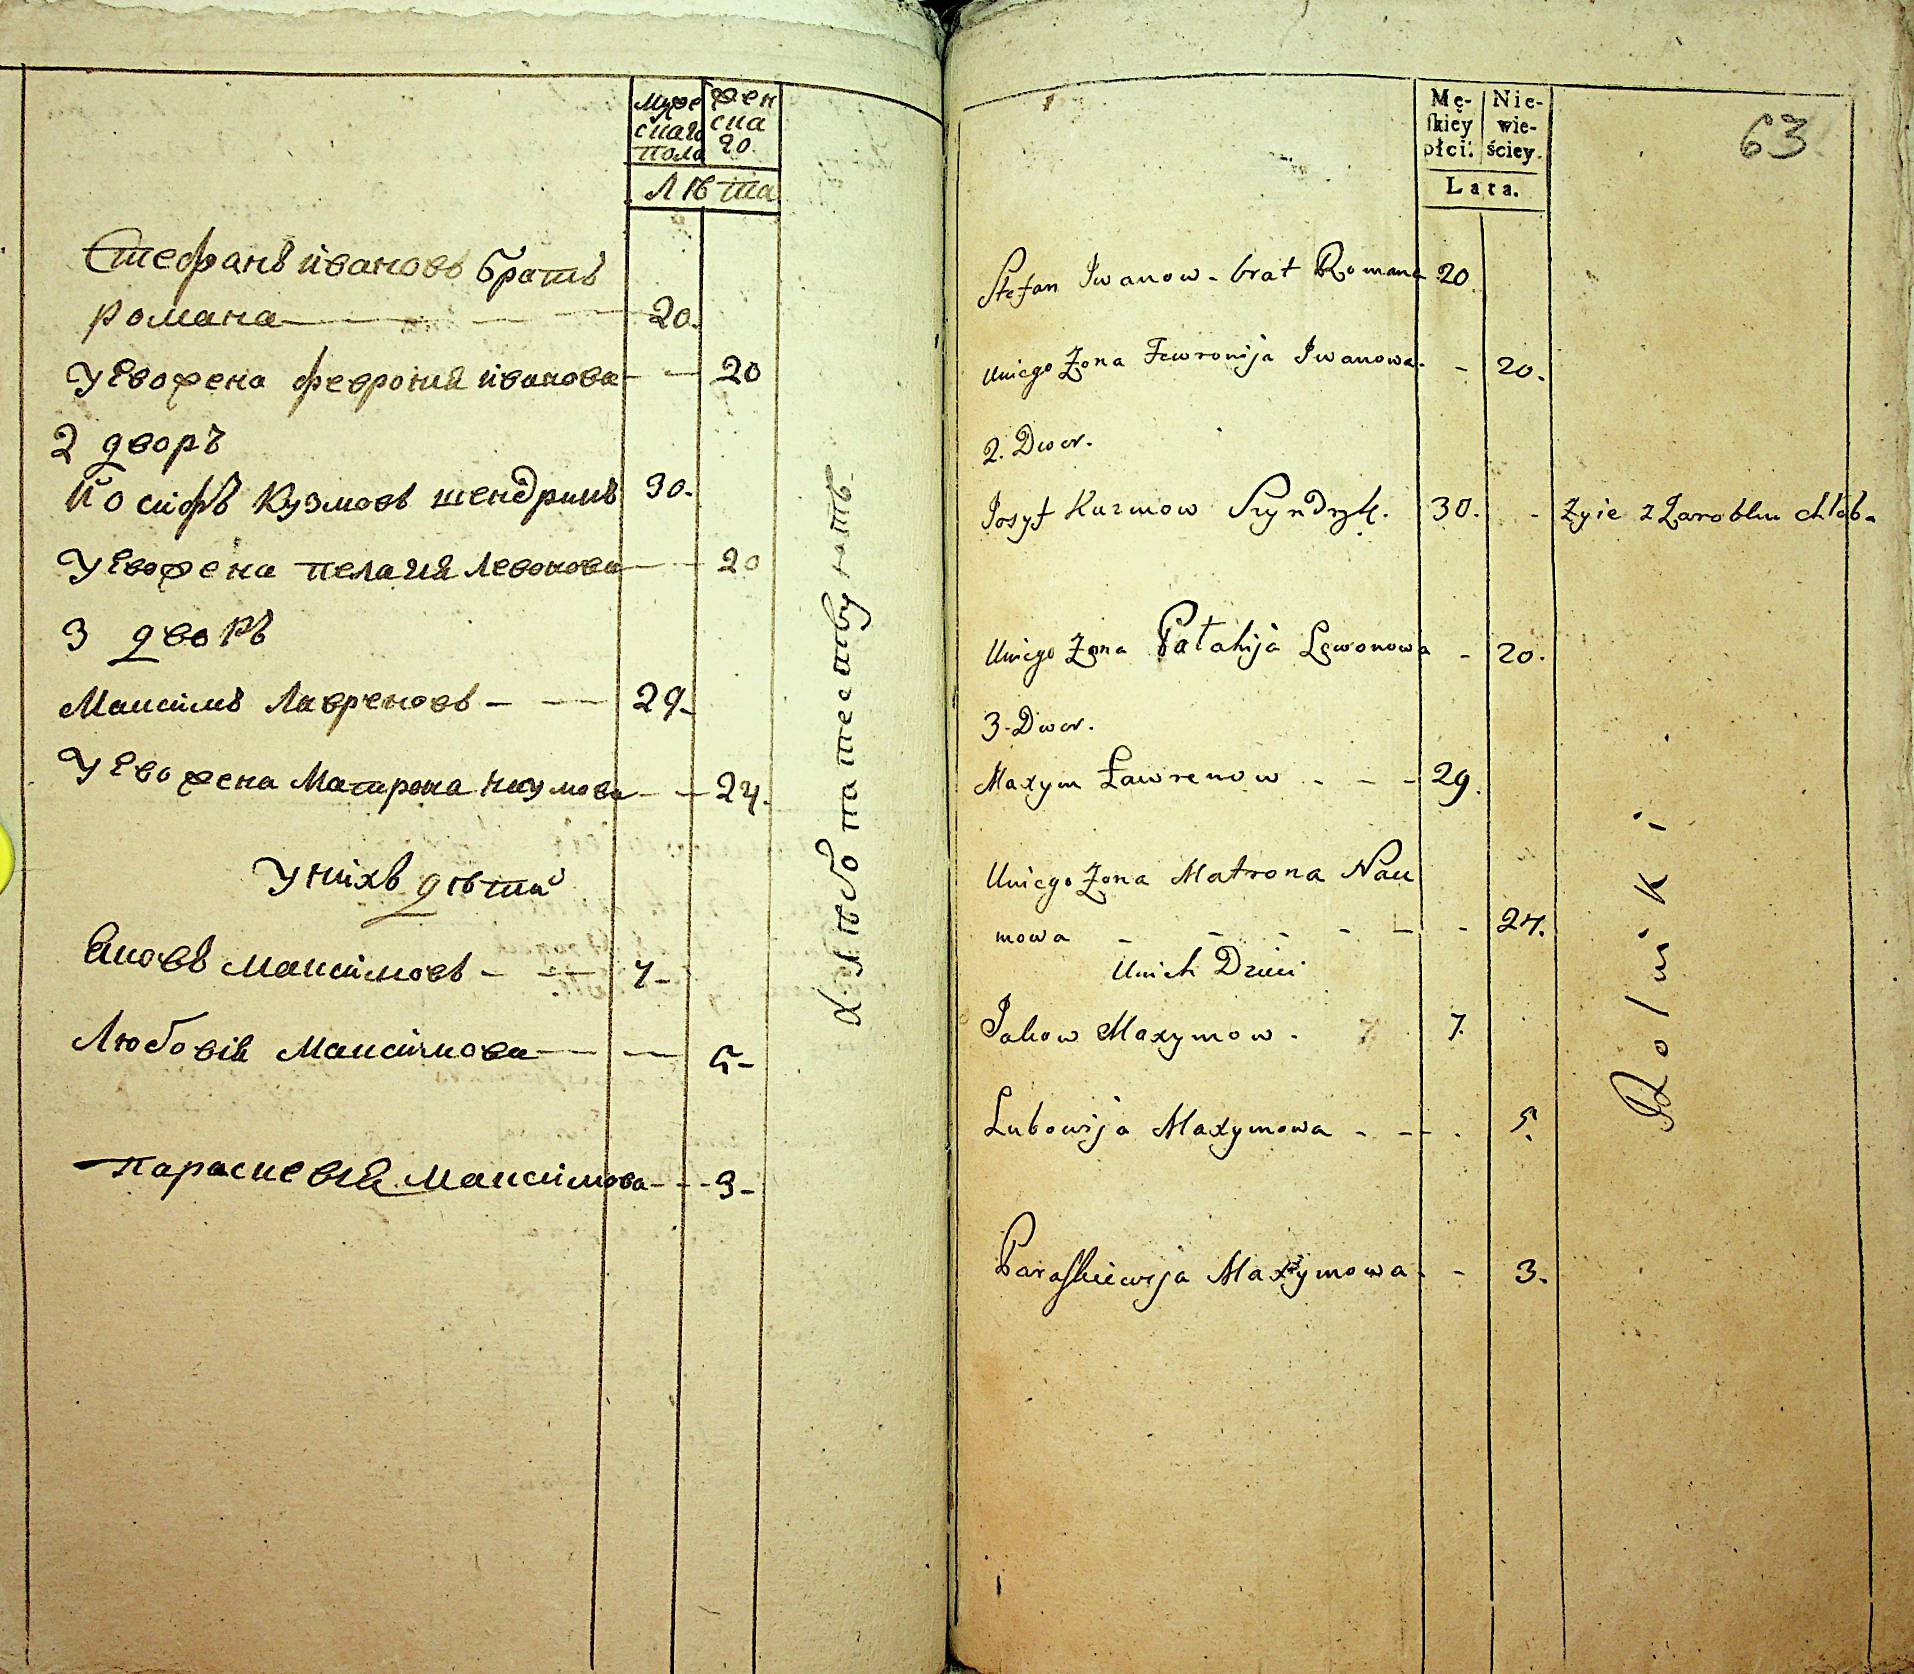 муже
скаго
пола
жен
ска
го.
Лѣта
Стефанъ ивановъ братъ
романа 20.
У Ево жена феврония иванова 20
2 дворъ
Иосифъ Кузмовъ шендрикъ 30.
У Ево жена пелагия Левонова 20
3 дворъ
Максимъ Лавреновъ 29.
У Ево жена Матрона Наумова 24.
У нихъ дѣти
Яковъ Максимовъ 7
Любовiя Максимова 5
параскевiя Максимова 3
Хлѣбопатес
63
Mę-
skiey
płci.
Nie-
wie-
ściey.
Lata.
Stefan Iwanow - brat Romana 20.
Uniego Żona Fewronija Iwanowa. - 20.
2. Dwor.
Iosyf Kuzmow Szyndryk. 30. - Żyie z Zarobku chleb.
Uniego Żona Pałahija Lewonowa - 20.
3. Dwor.
Maxym Ławrenow - - - 29.
Uniego Żona Matrona Nau
mowa - - - - - - 24.
Unich Dzieci
Jakow Maxymow. 7.
Lubowija Maxymowa - - - 5.
Paraskiewija Maxymowa. - 3.
Rolniki